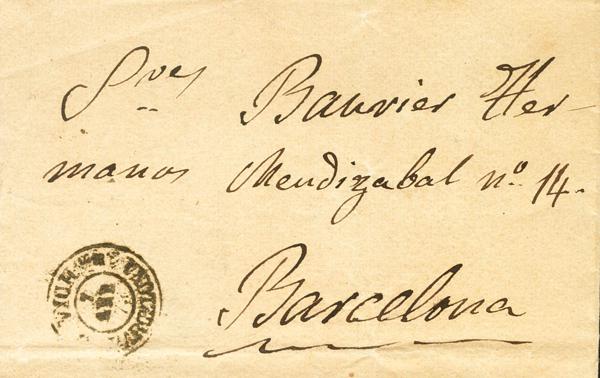 Sres Bauvier Her-
manos Mendizabal nº 14.
Barcelona
VICH